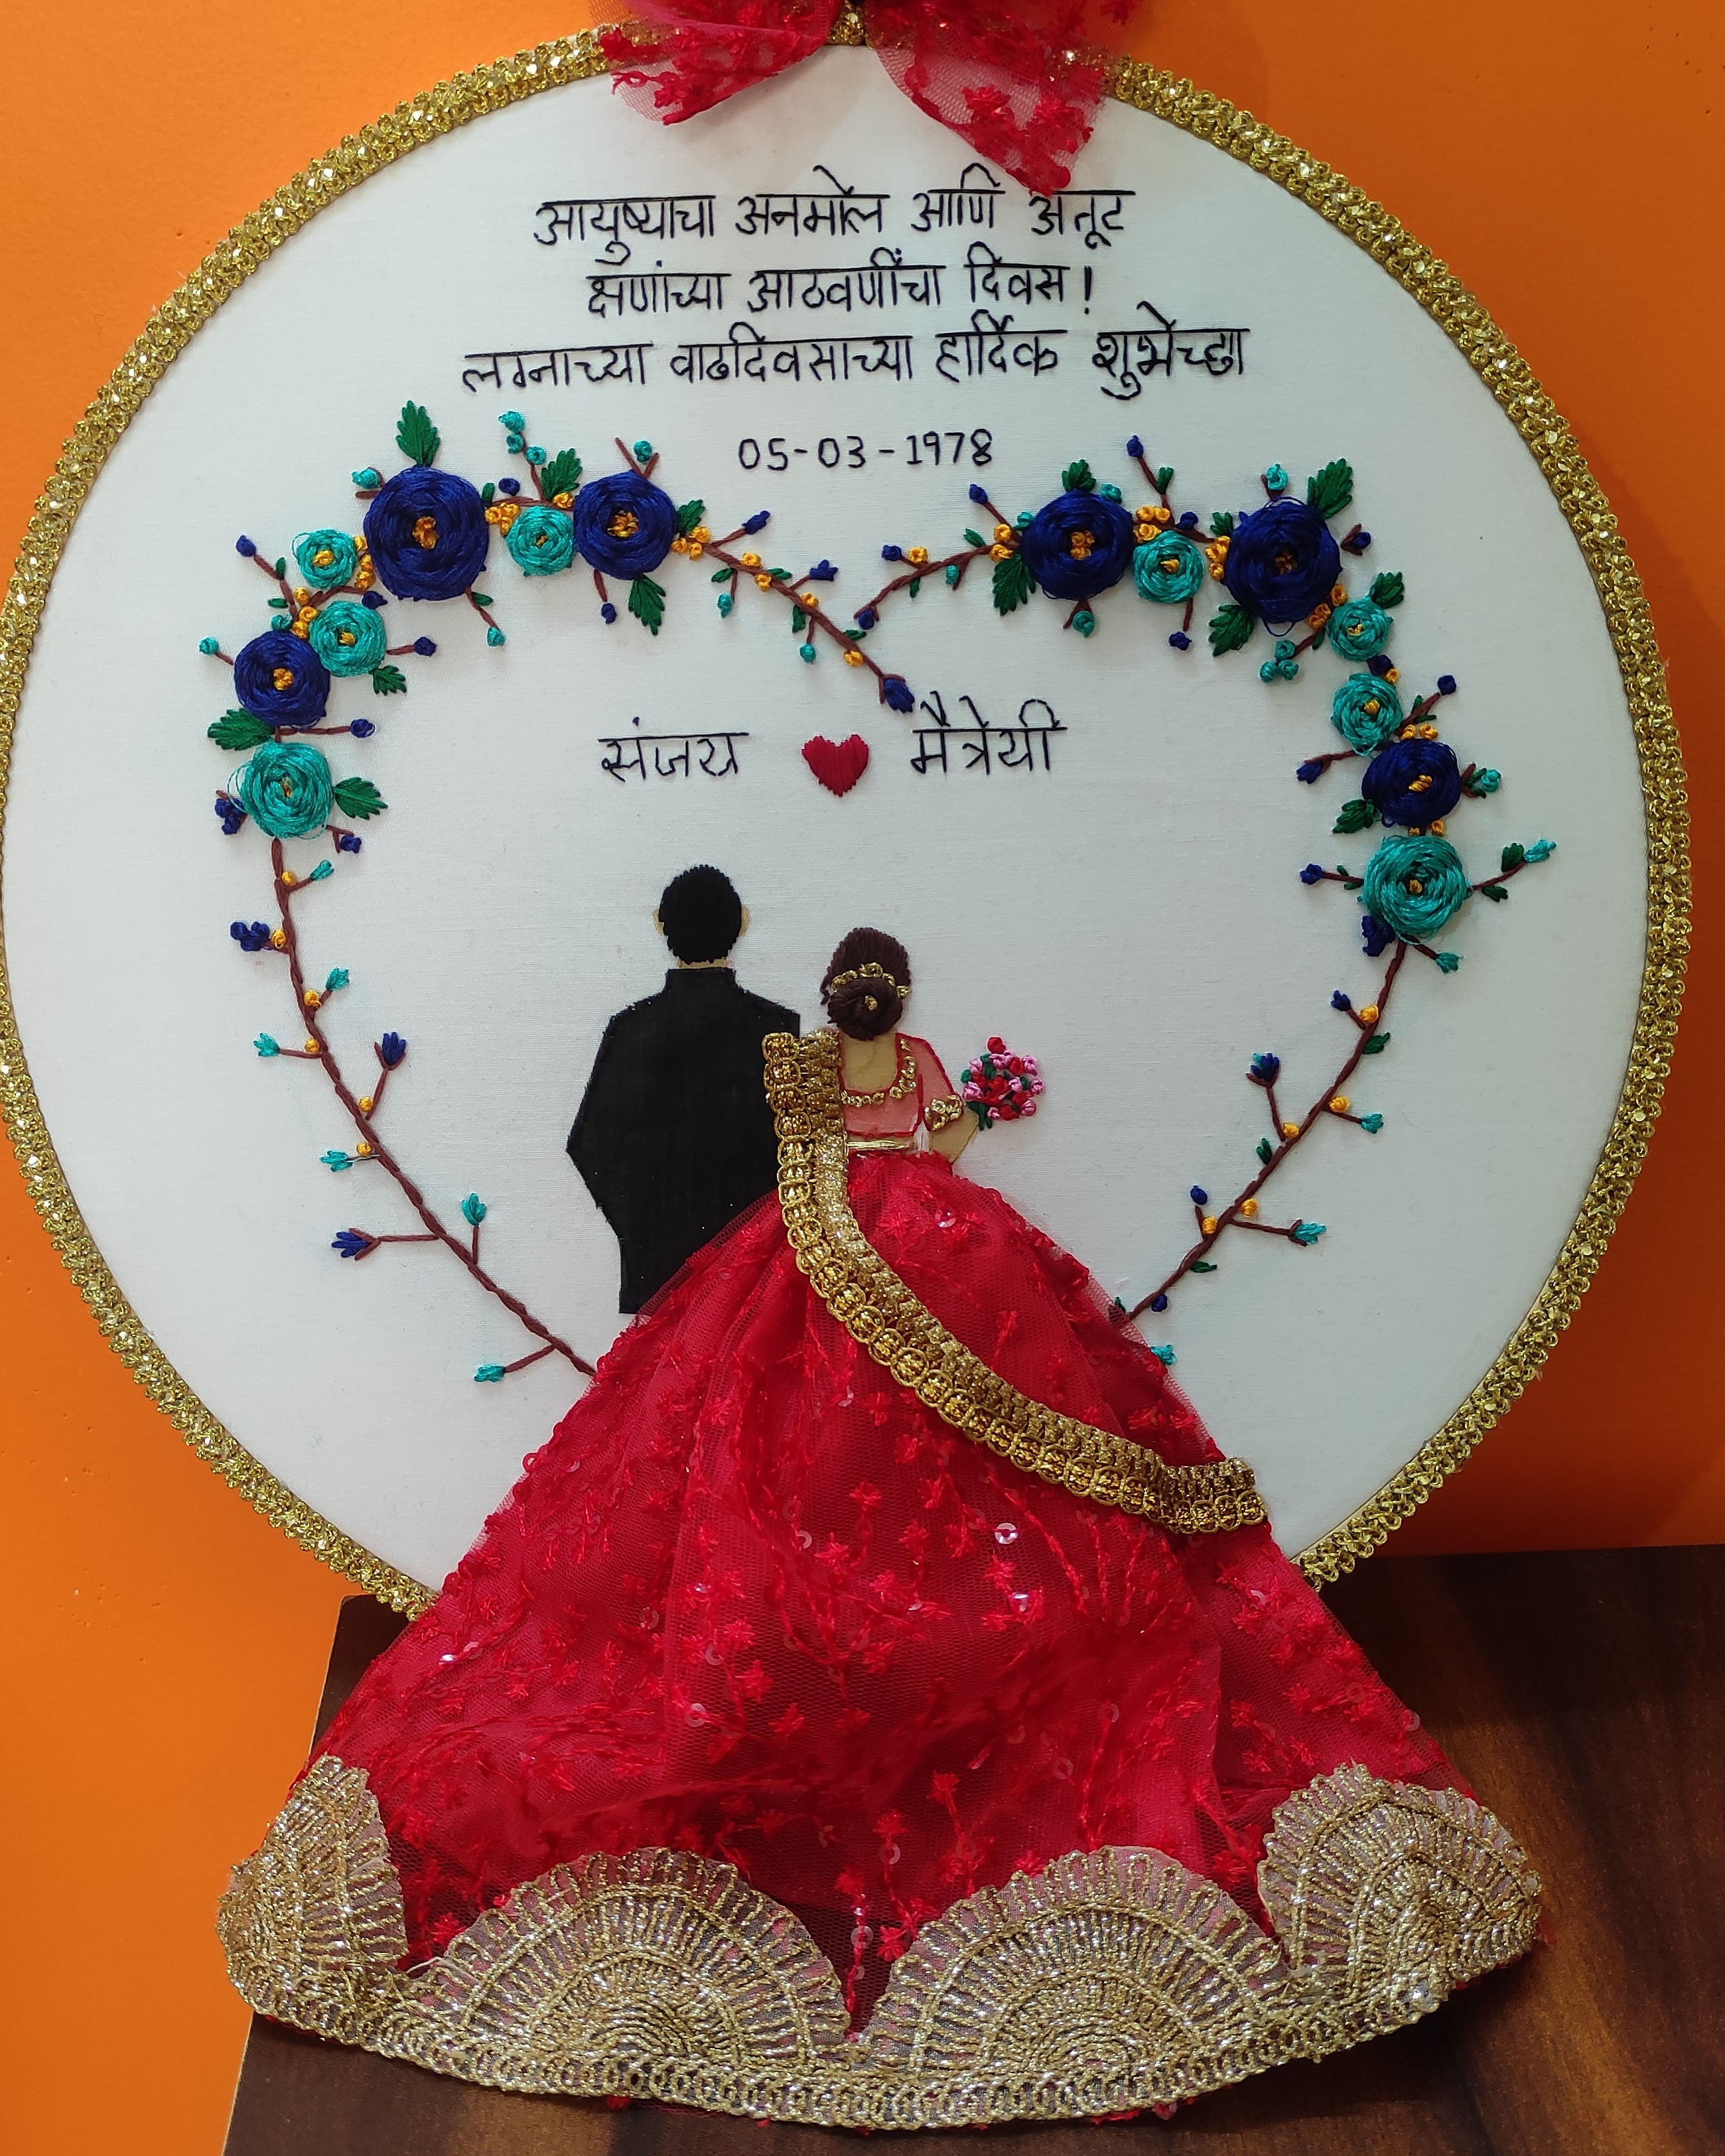 आयुष्याचा अनमोल आणि अतूट
क्षणांच्या आठवणींचा दिवस!
लग्नाच्या वाढदिवसाच्या हार्दिक शुभेच्छा
05-03-1978
संजय मैत्रेयी